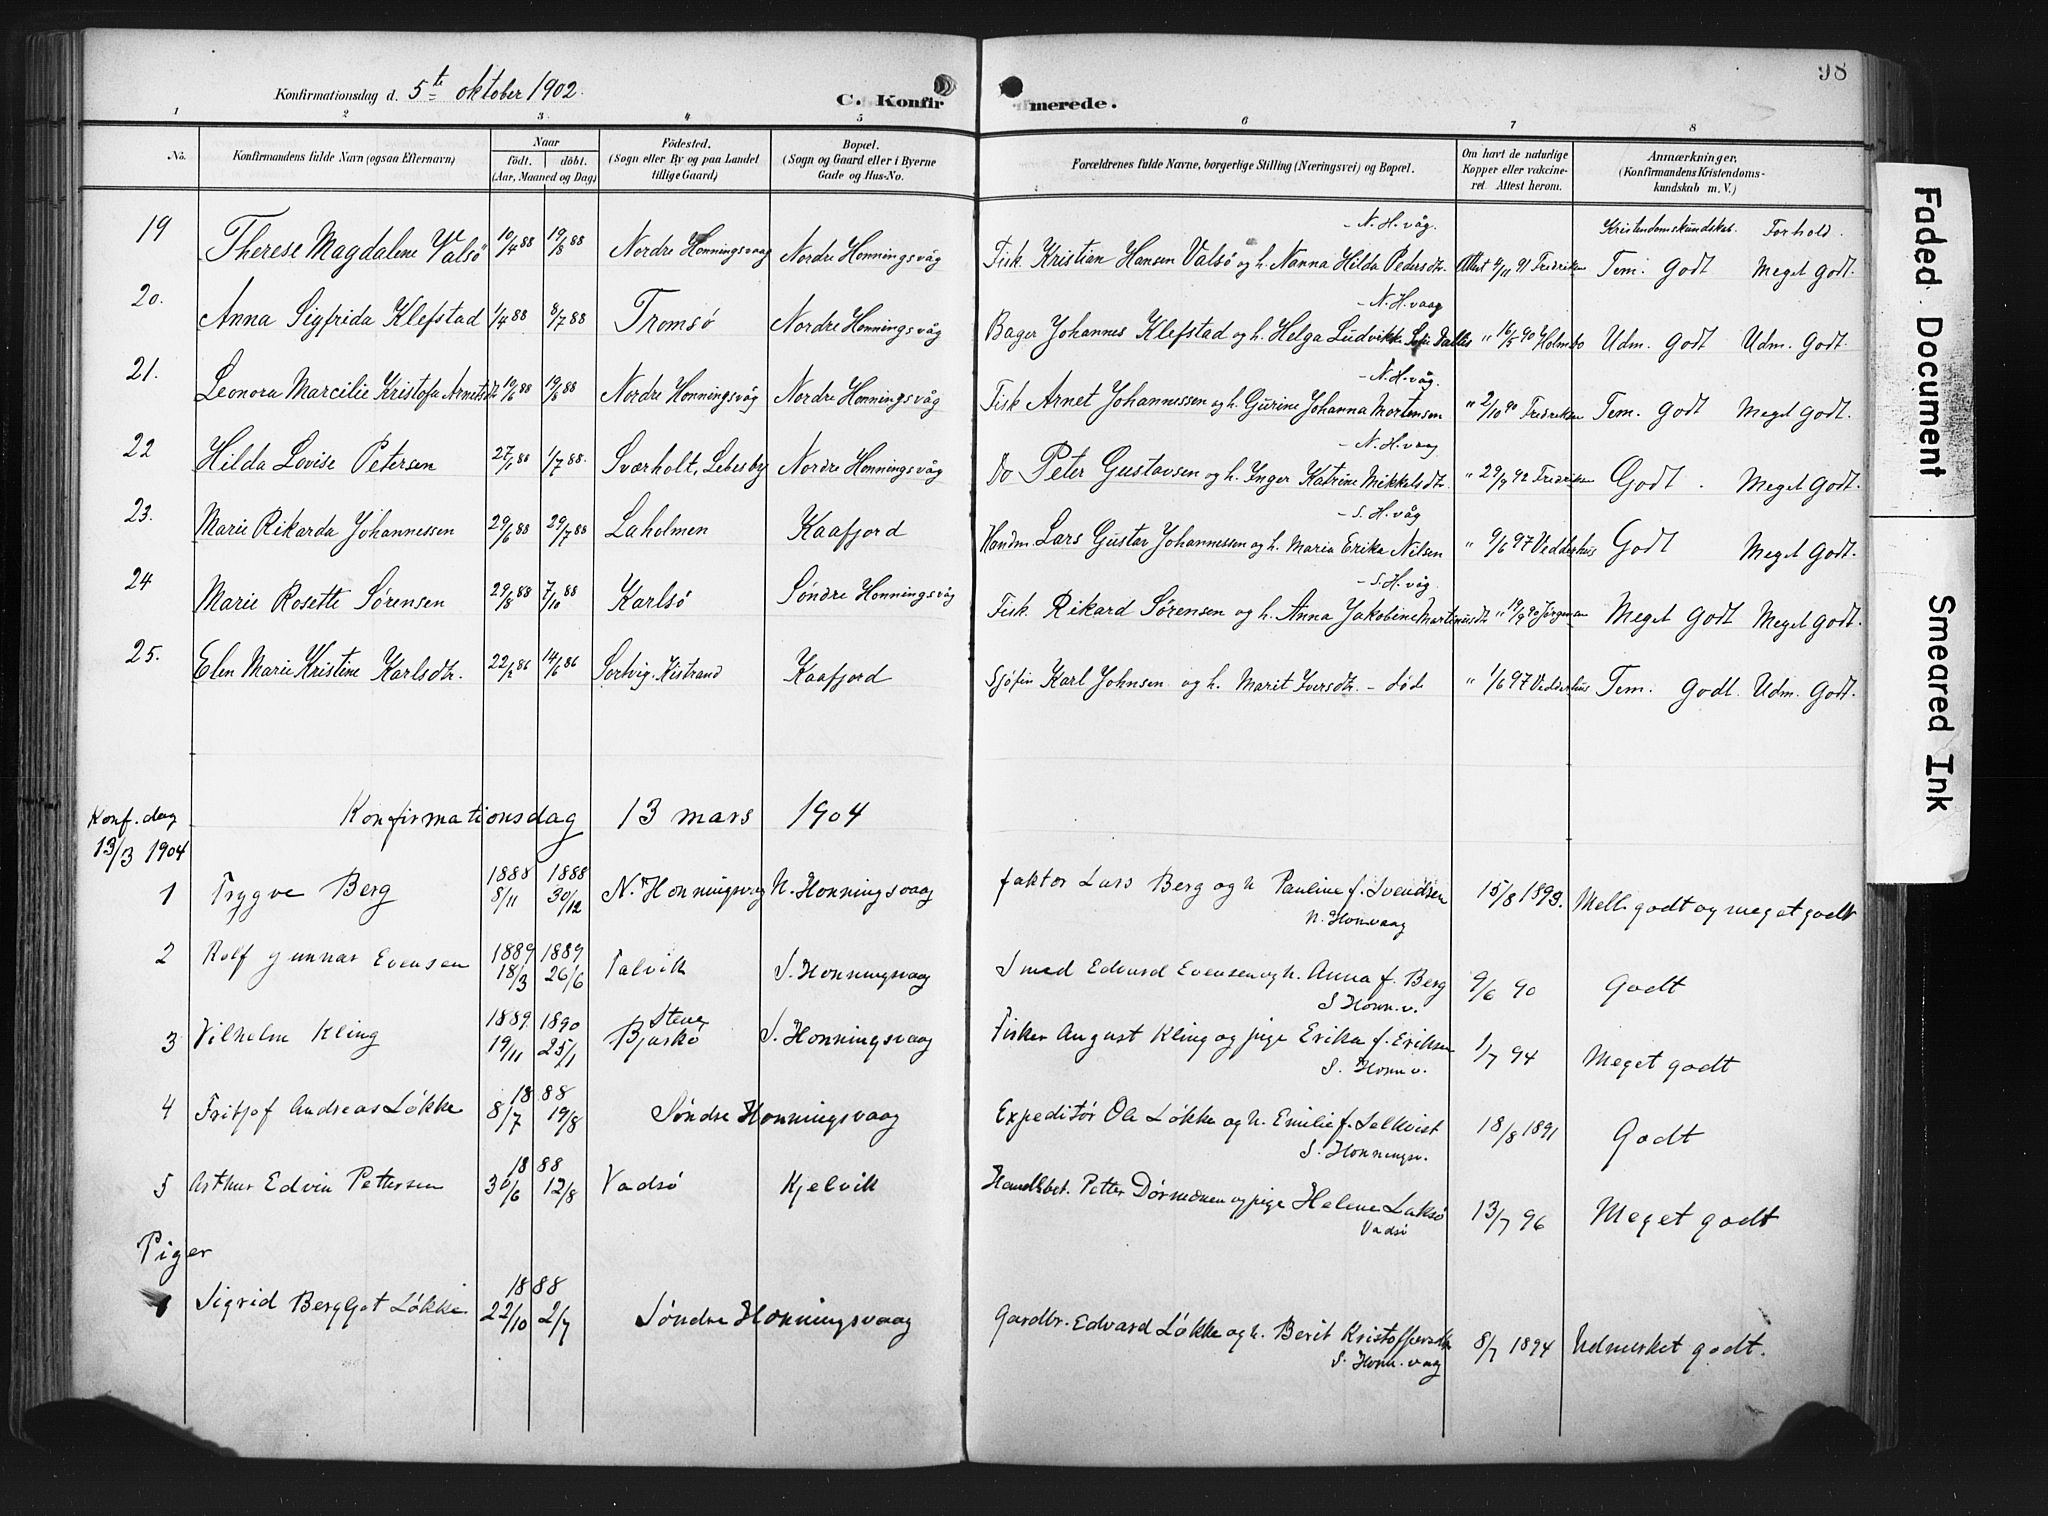 98
Konfirmationsdag d. 5te oktober 1902.
C. Konfirmerede.
1 2 3 4 5 6 7 8
No. Konfirmandens fulde Navn (ogsaa Efternavn) Naar födt. döbt. (Aar, Maaned og Dag) Födested. (Sogn eller By og paa Landet tillige Gaard) Bopæl. (Sogn og Gaard eller i Byerne Gade og Hus-No. Forældrenes fulde Navne, borgerlige Stilling (Næringsvei) og Bopæl. Om havt de naturlige Kopper eller vakcineret Attest herom. Anmærkninger. (Konfirmandens Kristendomskundskab m. V.)
Kristendomskundskab. Forhold.
19 Therese Magdalene Valsö 10/4 88 19/8 88 Nordre Honningsvaag Nordre Honningsvåg Fisk. Kristian Hansen Valsö og h. Nanna Hilda Pedersdtr. - N. H.våg. Attest 4/11 91 Fredriksen Tem. godt Meget godt.
20. Anna Sigfrida Klefstad 1/4 88 8/7 88 Tromsö Nordre Honningsvåg Bager Johannes Klefstad og h. Helga Ludvikke Sofie Dalles - N. H.vaag " 16/5 90 Holmbo Udm. godt Udm. godt.
21. Leonora Marcilie Kristofa Arnetsdtr 19/6 88 19/8 88 Nordre Honningsvåg Nordre Honningsvåg Fisk Arnet Johannessen og h. Gurine Johanna Mortensen - N. H.våg. " 2/10 90 Fredriksen Tem. godt Meget godt.
22 Hilda Lovise Petersen 27/1 88 1/7 88. Sværholt, Lebesby Nordre Honningsvåg Do Peter Gustavsen og h. Inger Katrine Mikkelsdtr. - N. H.vaag " 29/9 92 Fredriksen Godt. Meget godt.
23. Marie Rikarda Johannessen 29/6 88 29/7 88 Laholmen Kaafjord Handm. Lars Gustav Johannessen og h. Maria Erika Nilsen - S. H.våg " 9/6 97 Vedderhus Godt Meget godt.
24 Marie Rosette Sørensen 29/8 88 7/10 88 Karlsö Søndre Honningsvåg Fisk. Rikard Sørensen og h. Anna Jakobine Martinusdtr - S. H. våg. " 19/9 90 Jørgensen Meget godt Meget godt.
25. Elen Marie Kristine Karlsdtr. 22/2 86 14/6 86 Sortvig. Kistrand Kaafjord Sjøfin Karl Johnsen og h. Marit Iversdtr. - død " 1/6 97 Vedderhus Tem. godt. Udm. godt.
Konf. dag 13/3 1904
Konfirmationsdag 13 mars 1904
1 Trygve Berg 1888 8/11 1888 30/12 N. Honningsvag N. Honningsvaag faktor Lars Berg og h Pauline f. Svendsen N. Honvaag 15/8 1893. Mell. godt og meget godt
2 Rolf Gunnar Evensen 1889 18/3 1889 26/6 Talvik S. Honningsvaag Smed Edvard Evensen og h. Anna f. Berg S Honn.v. 9/6 90 Godt
3 Vilhelm Kling 1889. 19/11 1890 25/1 Bjarkö S. Honningsvaag Fisker August Kling og pige Erika f. Eriksen S. Honn v. 1/7 94 Meget godt
4 Fritjof Andreas Løkke 1888 8/7 19/8 Søndre Honningsvaag Expeditør Ole Løkke og h. Emilie f. Selkvist S. Honningsv. 18/8 1891 Godt
5 Arthur Edvin Pettersen 1888 30/6 12/8 Vadsö Kjelvik Handlsbet. Petter Dørmænen og pige Helene Laksø Vadsö 13/7 96 Meget godt
Piger
1 Sigrid Bergljot Løkke 1888 22/10 2/7 Søndre Honningsvaag Gardbr. Edvard Løkke og h. Berit Kristoffersdtr S. Honn. vaag 8/7 1894 Udmerket godt.
Faded Document
Smeared Ink